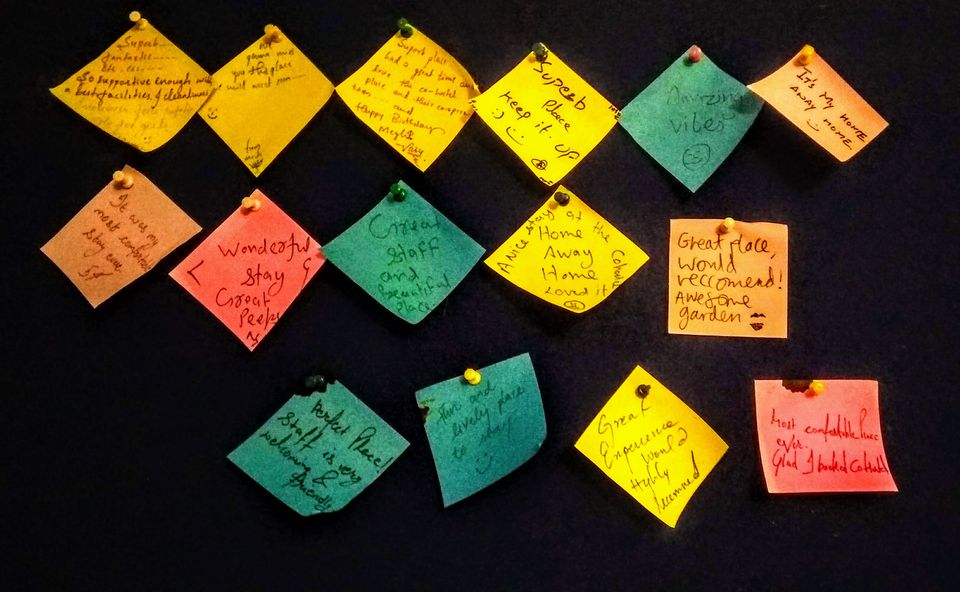 Superb
fantastic
So supportive enough with
best facilities & cleanliness
gonna miss
you this place
will visit
Superb place
had a great time
love the
place and their
and
Happy Birthday
Superb
Place
Keep it up
Amazing
vibes
It's My Home
AWAY HOME
It was my
most comfortable
stay ever
Wonderful
stay
Great
Peeps
Great
Staff
and
beautiful
Place
A Nice stay at the
Home
Away
Home
Loved it
Great place,
would
reccomend!
Awesome
garden
Perfect Place!
Staff is very
welcoming &
friendly
Fun and
lively place
to stay
Great
Experience
Would
Highly
Most comfortable
ever.
Glad I booked